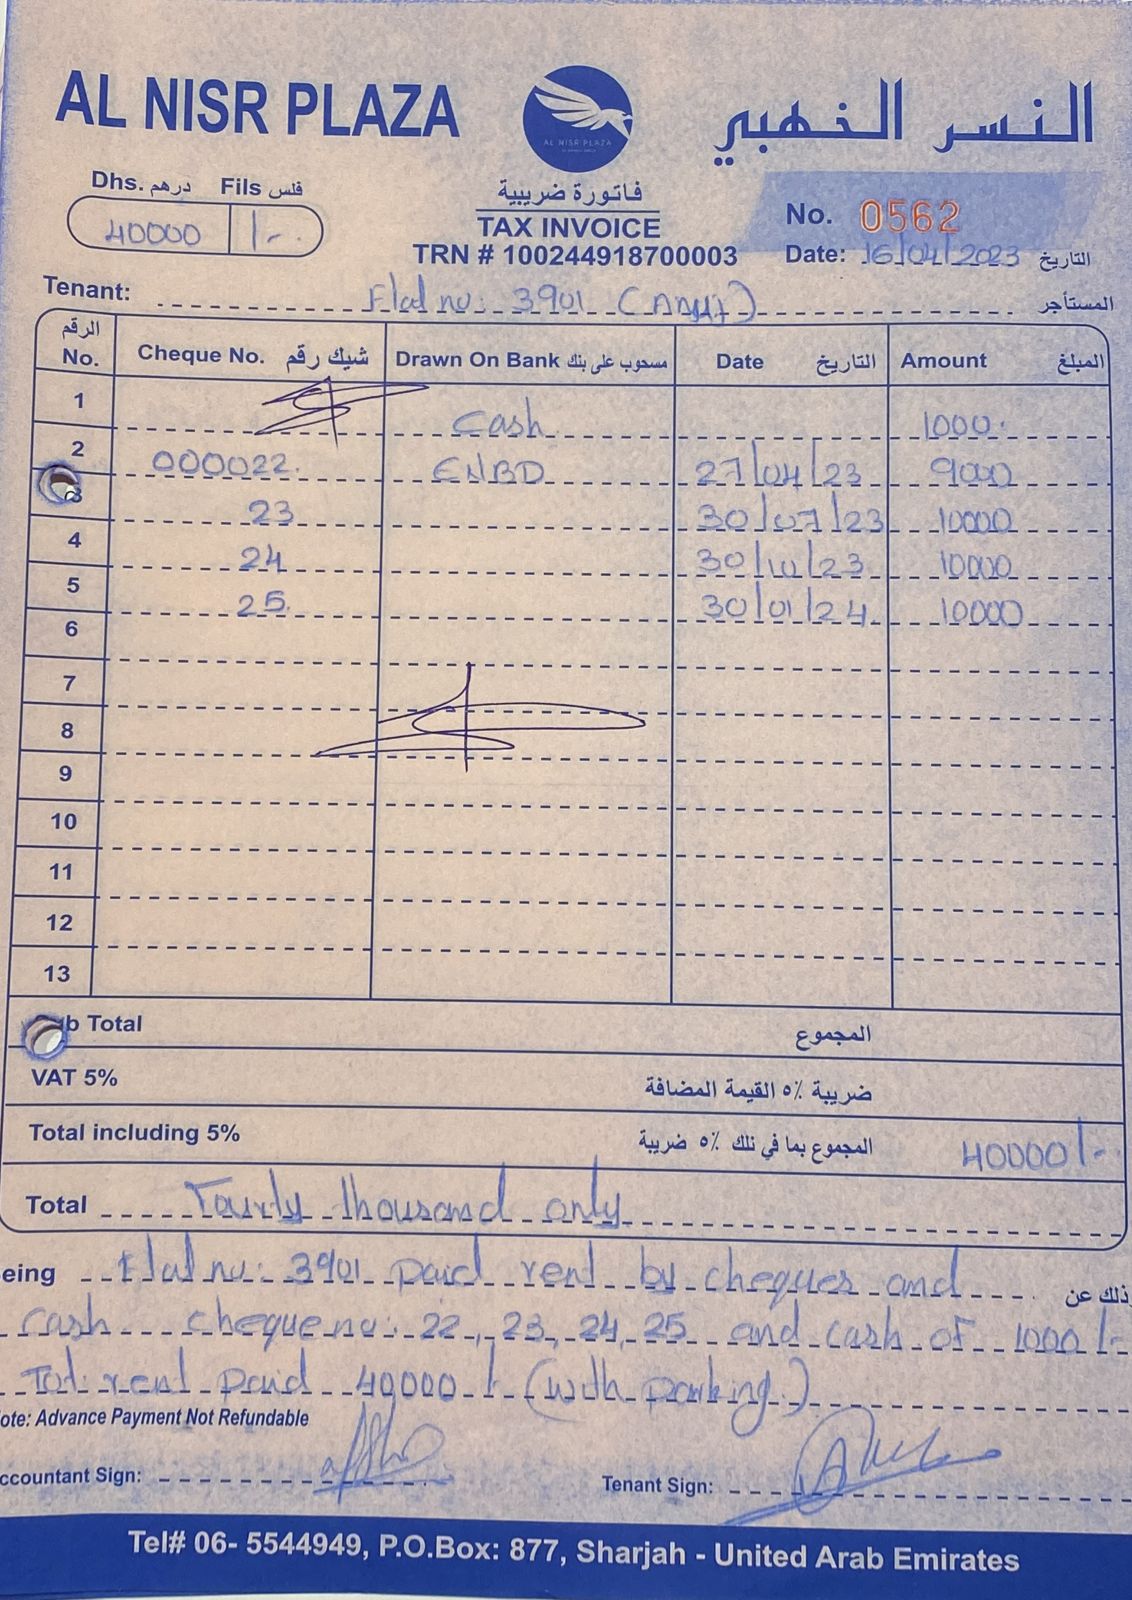 AL NISR PLAZA
النسر الذهبي
AL NISR PLAZA
Dhs. درهم Fils فلس
40000 /-
فاتورة ضريبية
TAX INVOICE
TRN # 100244918700003
No. 0562
Date: 16/04/2023 التاريخ
Tenant: Flat no: 3901 المستأجر
الرقم No. Cheque No. شيك رقم Drawn On Bank مسحوب على بنك Date التاريخ Amount المبلغ
1 Cash 1000.
2 000022. ENBD 27/04/23 9000
3 23 30/07/23 10000
4 24 30/10/23 10000
5 25 30/01/24 10000
6
7
8
9
10
11
12
13
Sub Total المجموع
VAT 5% ضريبة ٥٪ القيمة المضافة
Total including 5% المجموع بما في ذلك ٥٪ ضريبة 40000/-
Total Fourty thousand only
eing Flat no: 3901 paid rent by cheques and وذلك عن
cash cheque no: 22, 23, 24, 25 and cash of 1000/-
Tot: rent paid 40,000/- (with parking)
ote: Advance Payment Not Refundable
ccountant Sign: Tenant Sign:
Tel# 06- 5544949, P.O.Box: 877, Sharjah - United Arab Emirates